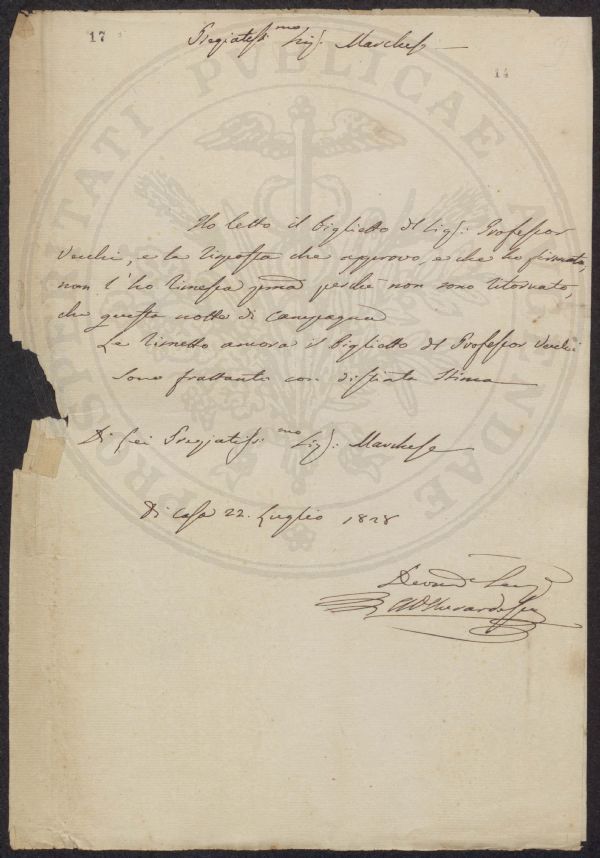 17
Pregiatiss.mo Sig.r Marchese
14
Ho letto il biglietto del Sig.r Professor
Vecchi, e la risposta che approvo, e che ho firmata,
non l'ho rimessa prima perchè non sono ritornato,
che questa notte di campagna
Le rimetto ancora il biglietto del Professor Vecchi
Sono frattanto con distinta stima
Di Lei Pregiatiss.mo Sig.r Marchese
Di Casa 22. Luglio 1828
PROSPERITATI PUBLICAE AUGENDAE